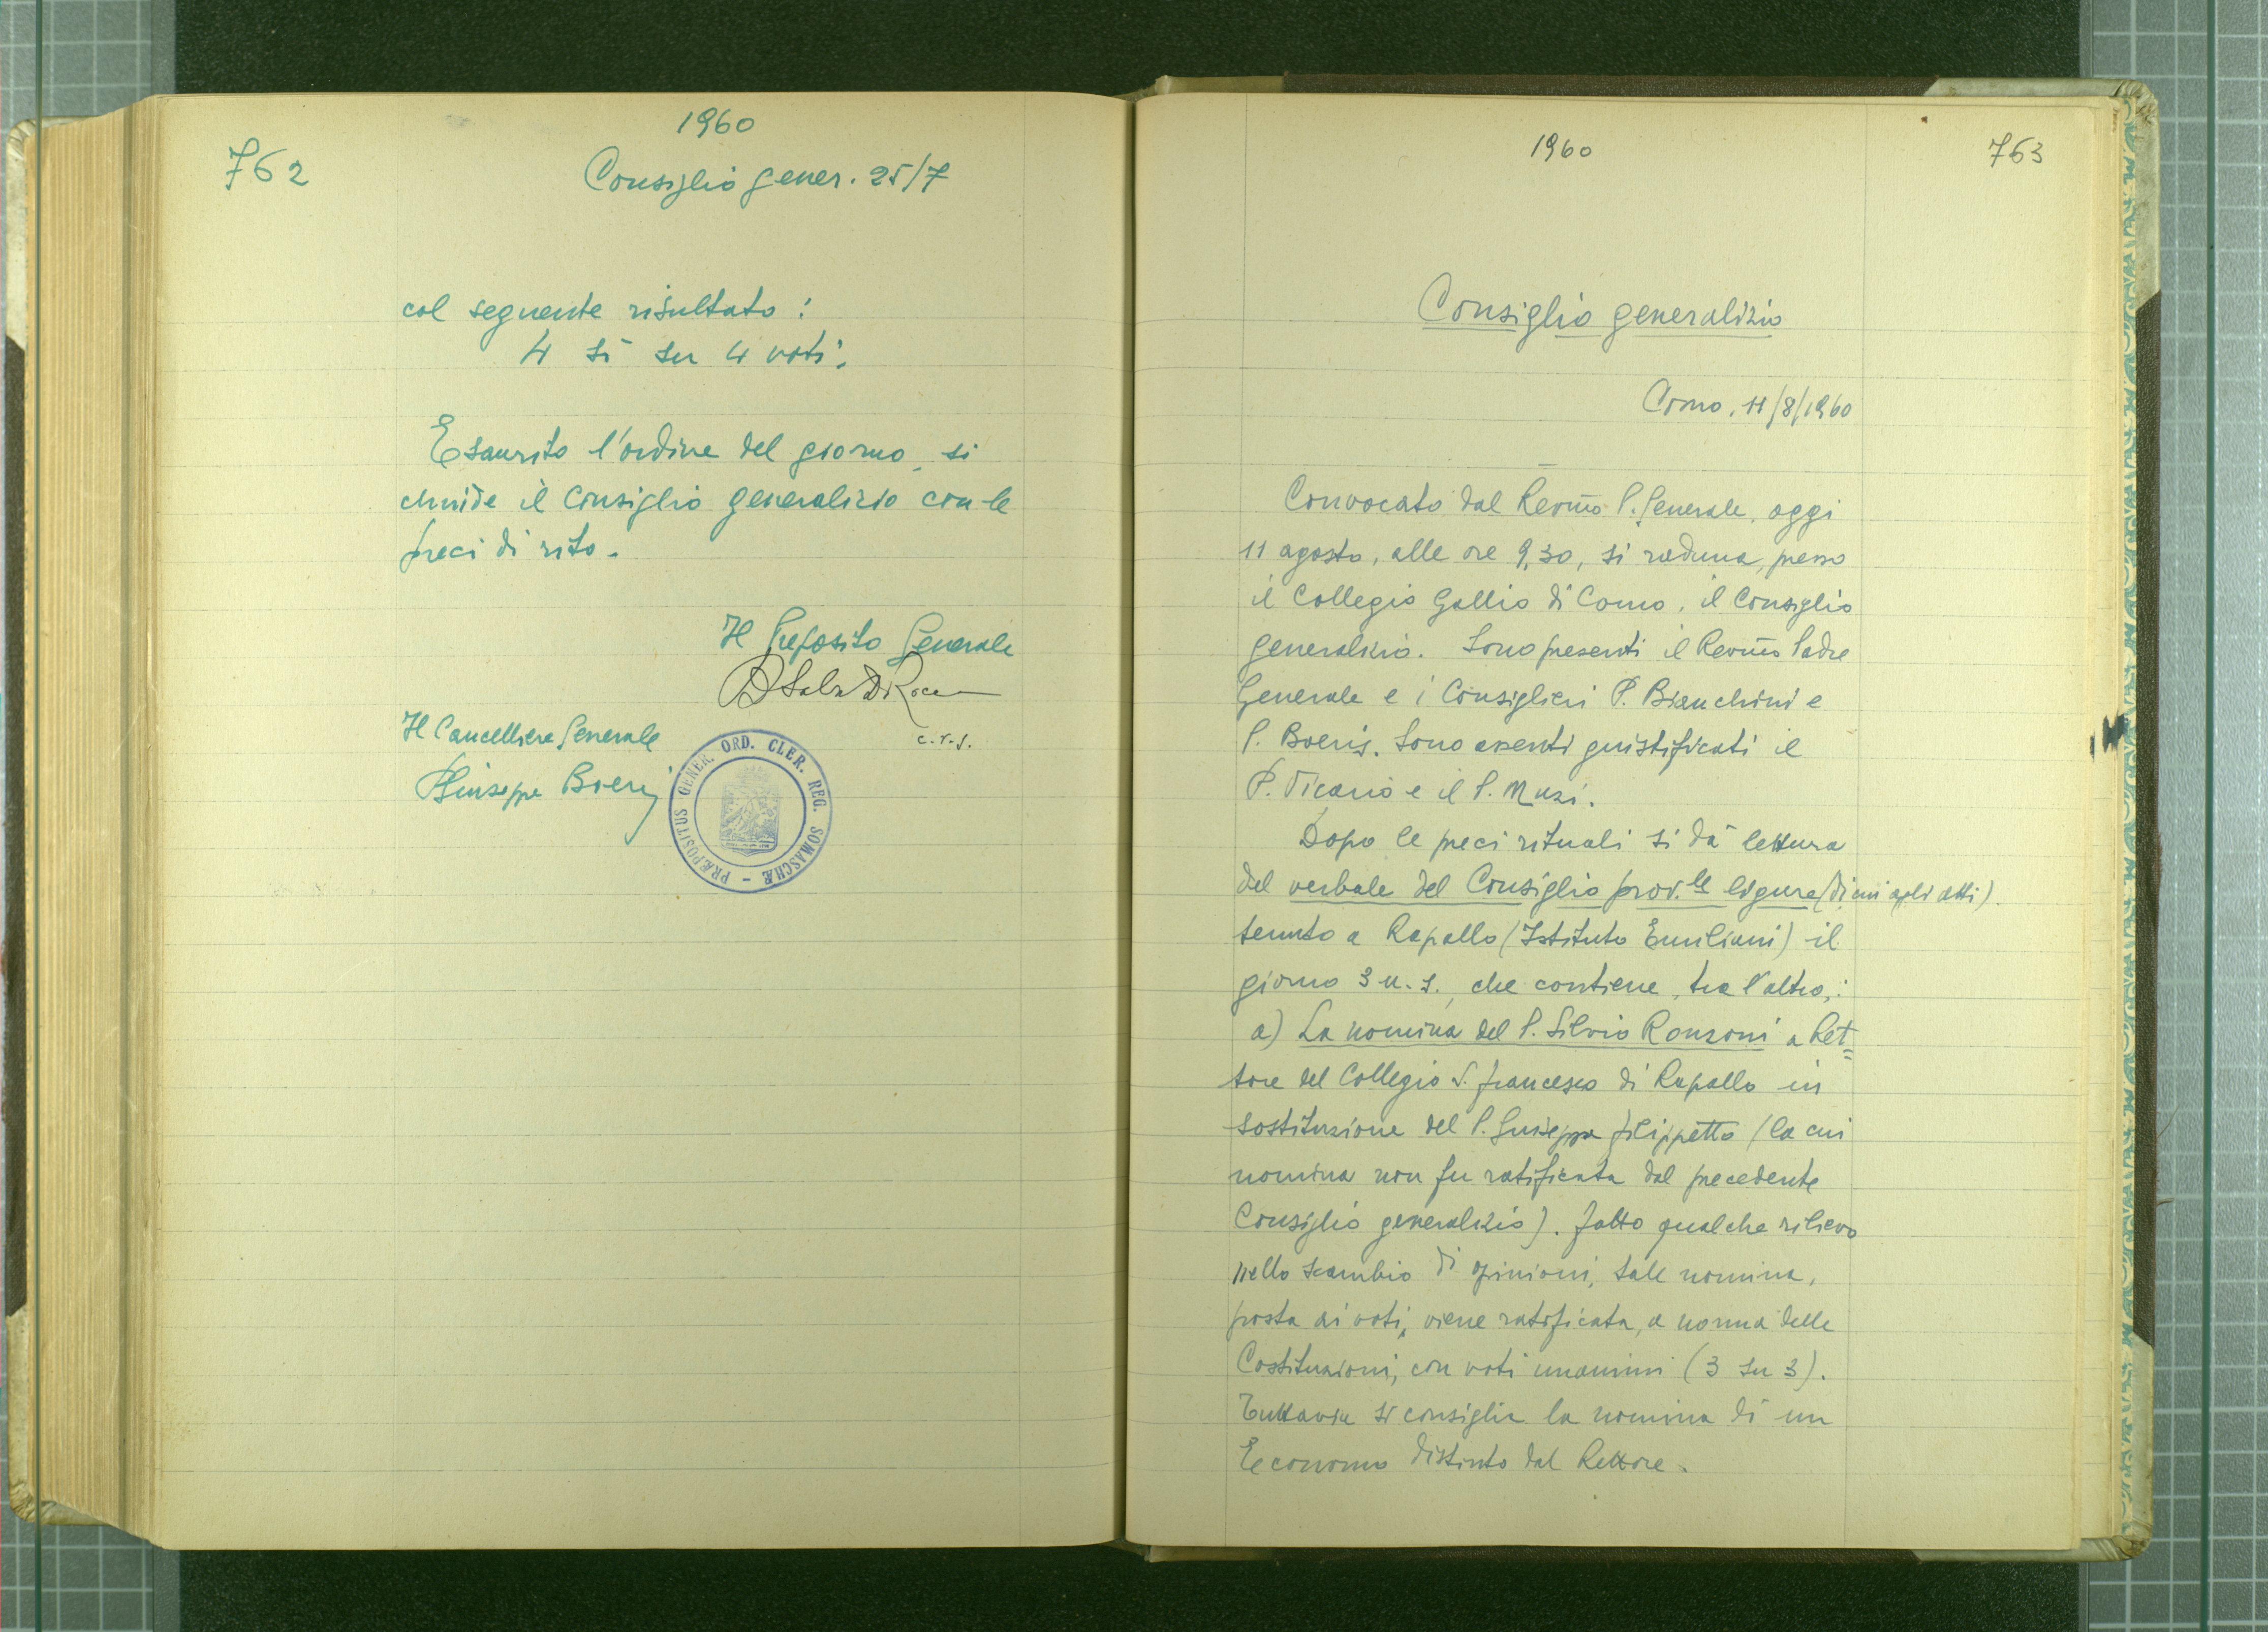 1960
762
Consiglio gener. 25/7
col seguente risultato:
4 sì su 4 voti.
Esaurito l'ordine del giorno, si
chiude il Consiglio generalizio con le
preci di rito.
Il Preposito Generale
c.r.s.
Il Cancelliere Generale
P. Giuseppe Boeris
PRÆPOSITUS GENER. ORD. CLER. REG. SOMASCHÆ -
1960
763
Consiglio generalizio
Como, 11/8/1960
Convocato dal Rev.mo P. Generale, oggi
11 agosto, alle ore 9,30, si raduna, presso
il Collegio Gallio di Como, il Consiglio
generalizio. Sono presenti il Rev.mo Padre
Generale e i Consiglieri P. Bianchini e
P. Boeris. Sono assenti giustificati il
P. Vicario e il P. Muzi.
Dopo le preci rituali si dà lettura
del verbale del Consiglio prov.le ligure (di cui agli atti).
tenuto a Rapallo (Istituto Emiliani) il
giorno 3 u. s., che contiene, tra l'altro,:
a) La nomina del P. Silvio Ronzoni a Ret=
tore del Collegio S. Francesco di Rapallo in
sostituzione del P. Giuseppe Filippetto (la cui
nomina non fu ratificata dal precedente
Consiglio generalizio). Fatto qualche rilievo
nello scambio di opinioni, tale nomina,
posta ai voti, viene ratificata, a norma delle
Costituzioni, con voti unanimi (3 su 3).
Tuttavia si consiglia la nomina di un
Economo distinto dal Rettore.